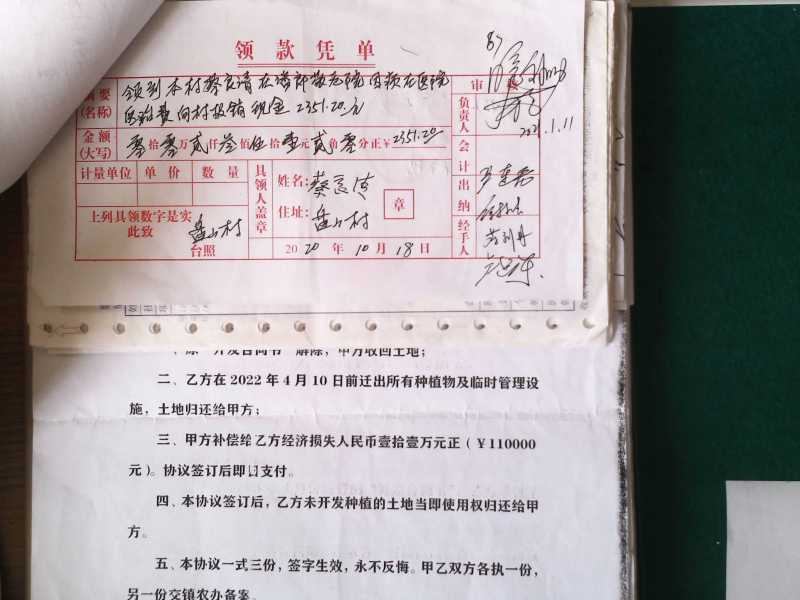 领款凭单
87
摘要
(名称)
领到本村蔡良清在潜郎敬老院因病在医院
医治费向村报销现金2351.20元
金额
(大写)
零拾零万贰仟叁佰伍拾壹元贰角零分正￥2351.20
计量单位 单价 数量
上列具领数字是实
此致
盘山村
台照
具领人盖章
姓名:蔡良清
住址:盘山村
章
2020年10月18日
审核
负责人
2021.1.11
会计
出纳
经手人
二、乙方在2022年4月10日前迁出所有种植物及临时管理设
施,土地归还给甲方;
三、甲方补偿给乙方经济损失人民币壹拾壹万元正(￥110000
元)。协议签订后即日支付。
四、本协议签订后,乙方未开发种植的土地当即使用权归还给甲
方。
五、本协议一式三份,签字生效,永不反悔。甲乙双方各执一份,
另一份交镇农办备案。